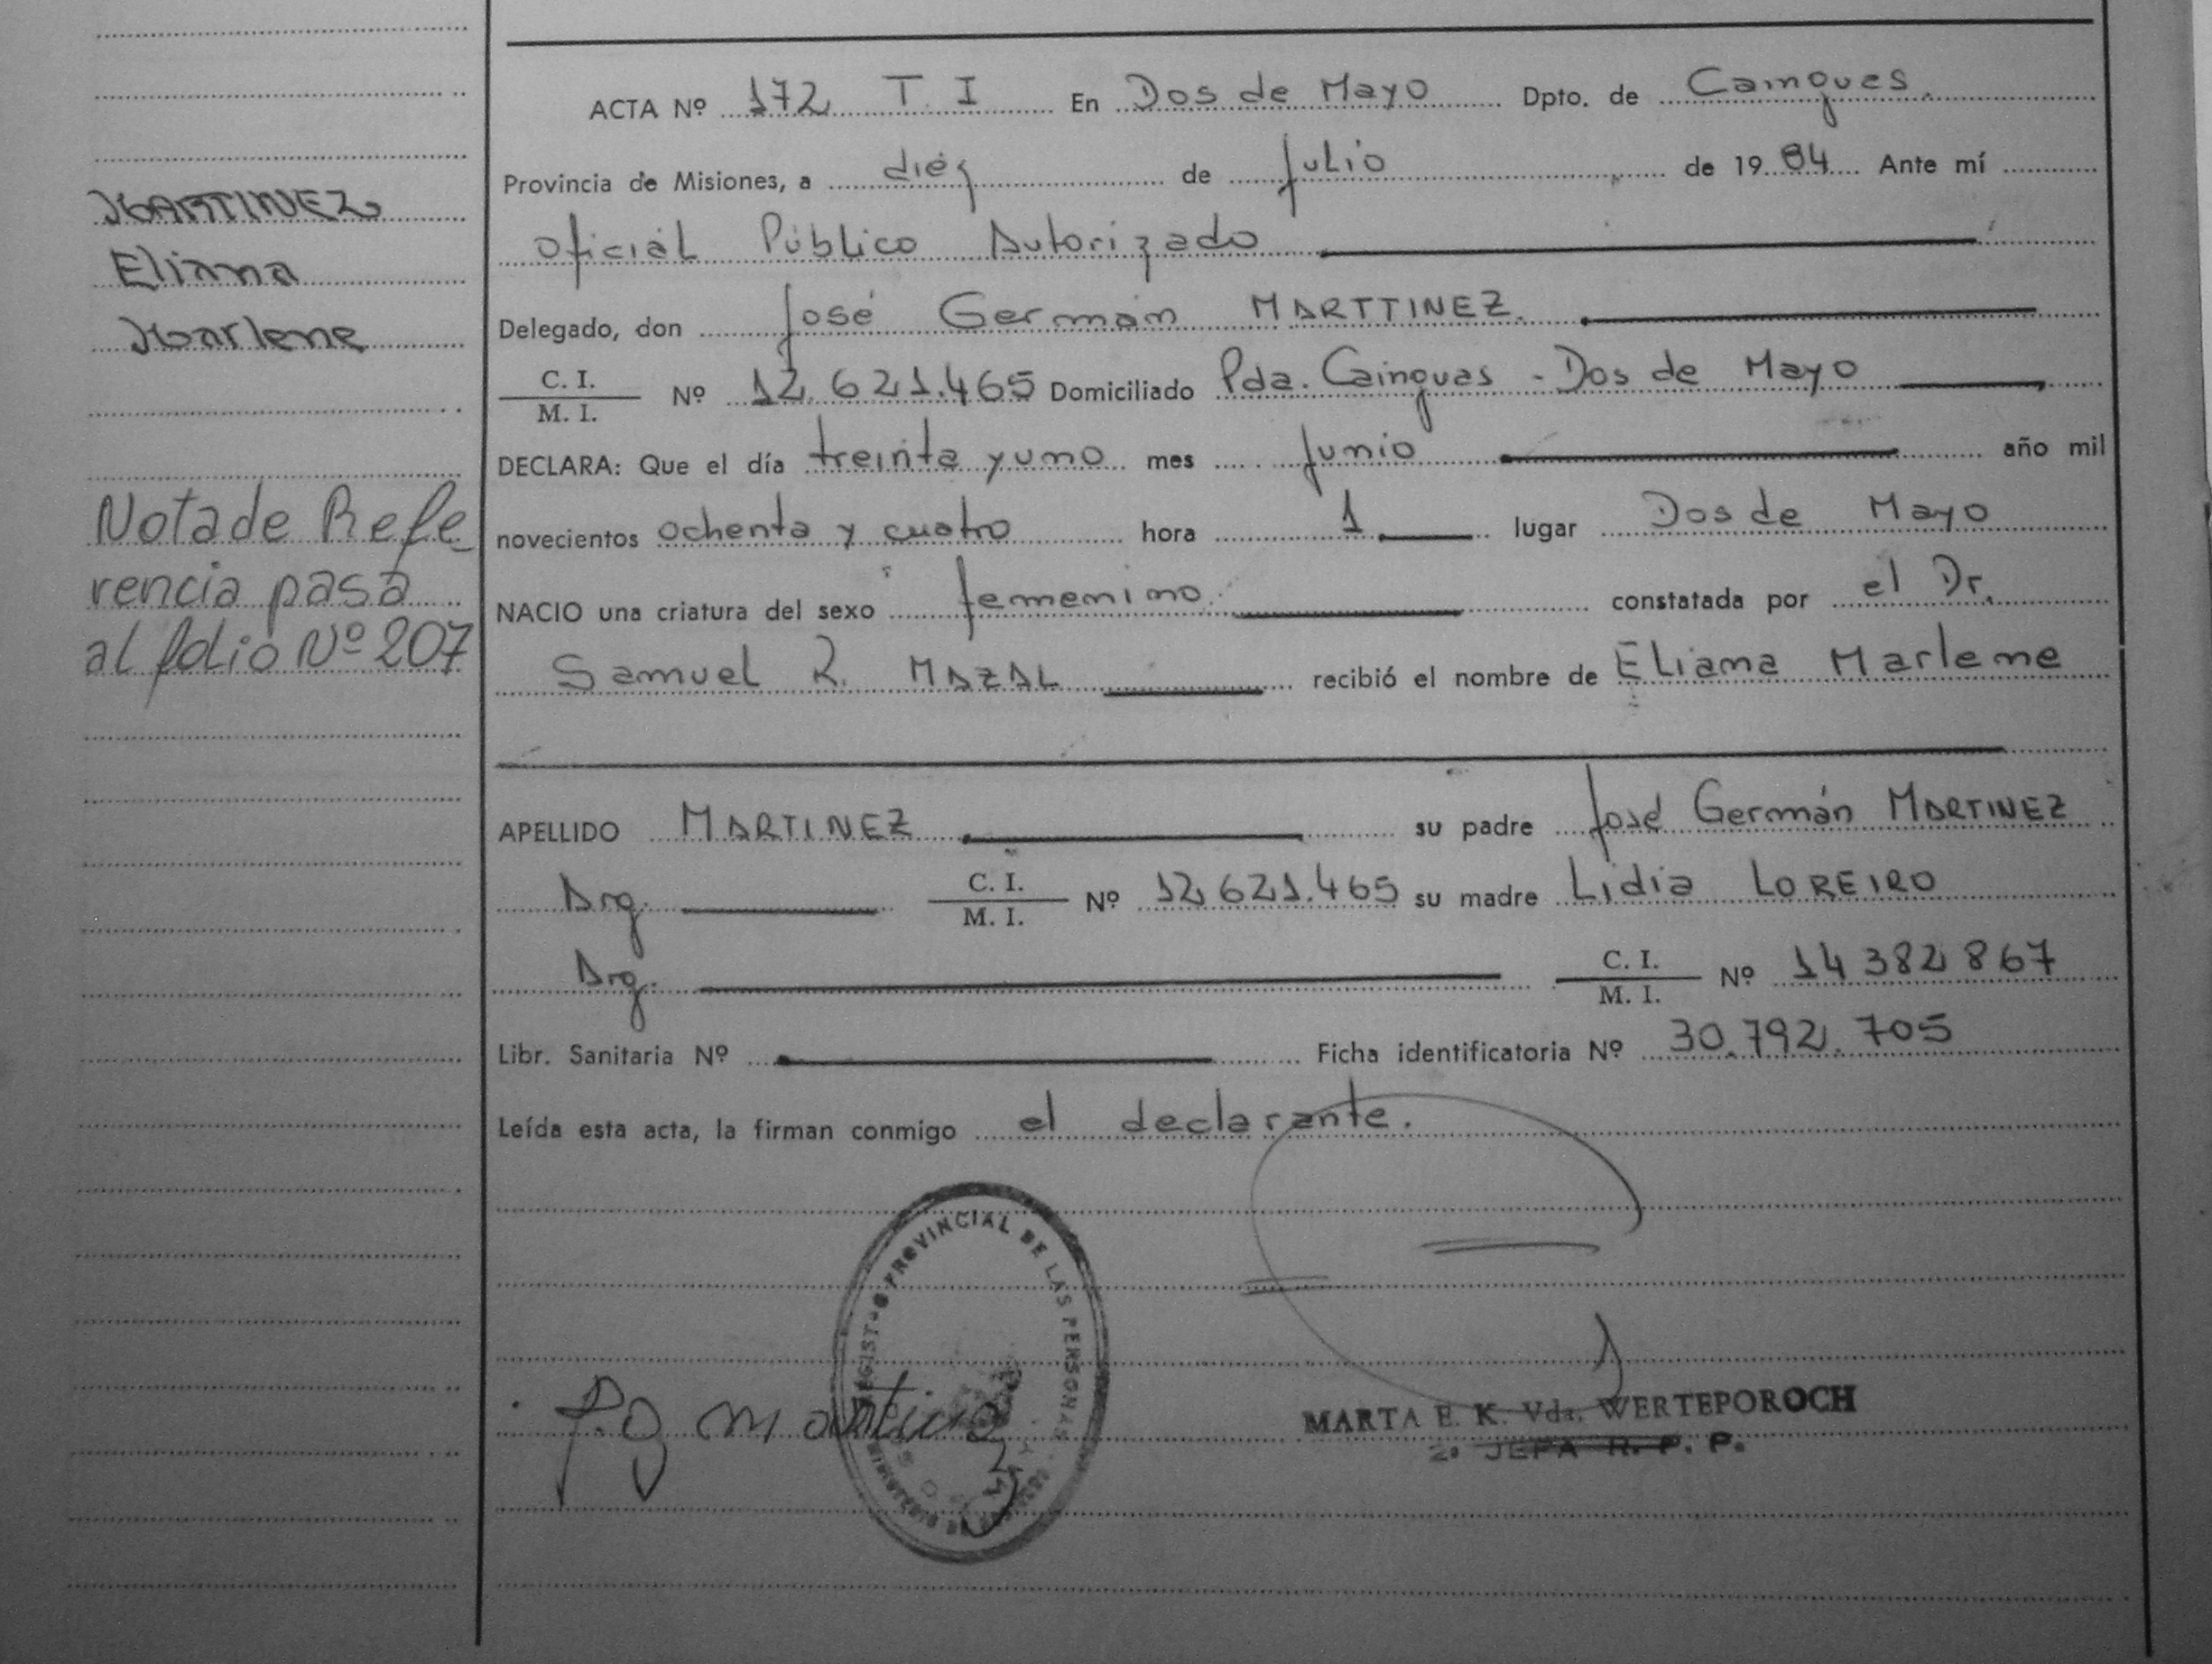 MARTINEZ
Eliana
Marlene
Nota de Refe
rencia pasa
al folio Nº 207
ACTA Nº 172 T. I En Dos de Mayo Dpto. de Caingues.
Provincia de Misiones, a diez de Julio de 19 84 Ante mí
Oficial Público Autorizado
Delegado, don José Germán MARTTINEZ.
C. I.
M. I.
Nº 12.621.465 Domiciliado Pda. Cainguas - Dos de Mayo
DECLARA: Que el día treinta y uno mes Junio año mil
novecientos ochenta y cuatro hora 1 lugar Dos de Mayo
NACIO una criatura del sexo femenino. constatada por el Dr.
Samuel R. MAZAL recibió el nombre de Eliana Marlene
APELLIDO MARTINEZ su padre José Germán MARTINEZ
Arg. C. I.
M. I.
Nº 12.621.465 su madre Lidia LOREIRO
Arg. C. I.
M. I.
Nº 14 382 867
Libr. Sanitaria Nº Ficha identificatoria Nº 30.792.705
Leída esta acta, la firman conmigo el declarante.
PROVINCIAL DE LAS PERSONAS
MARTA E. K. Vda. WERTEPOROCH
2ª JEFA R. P. P.